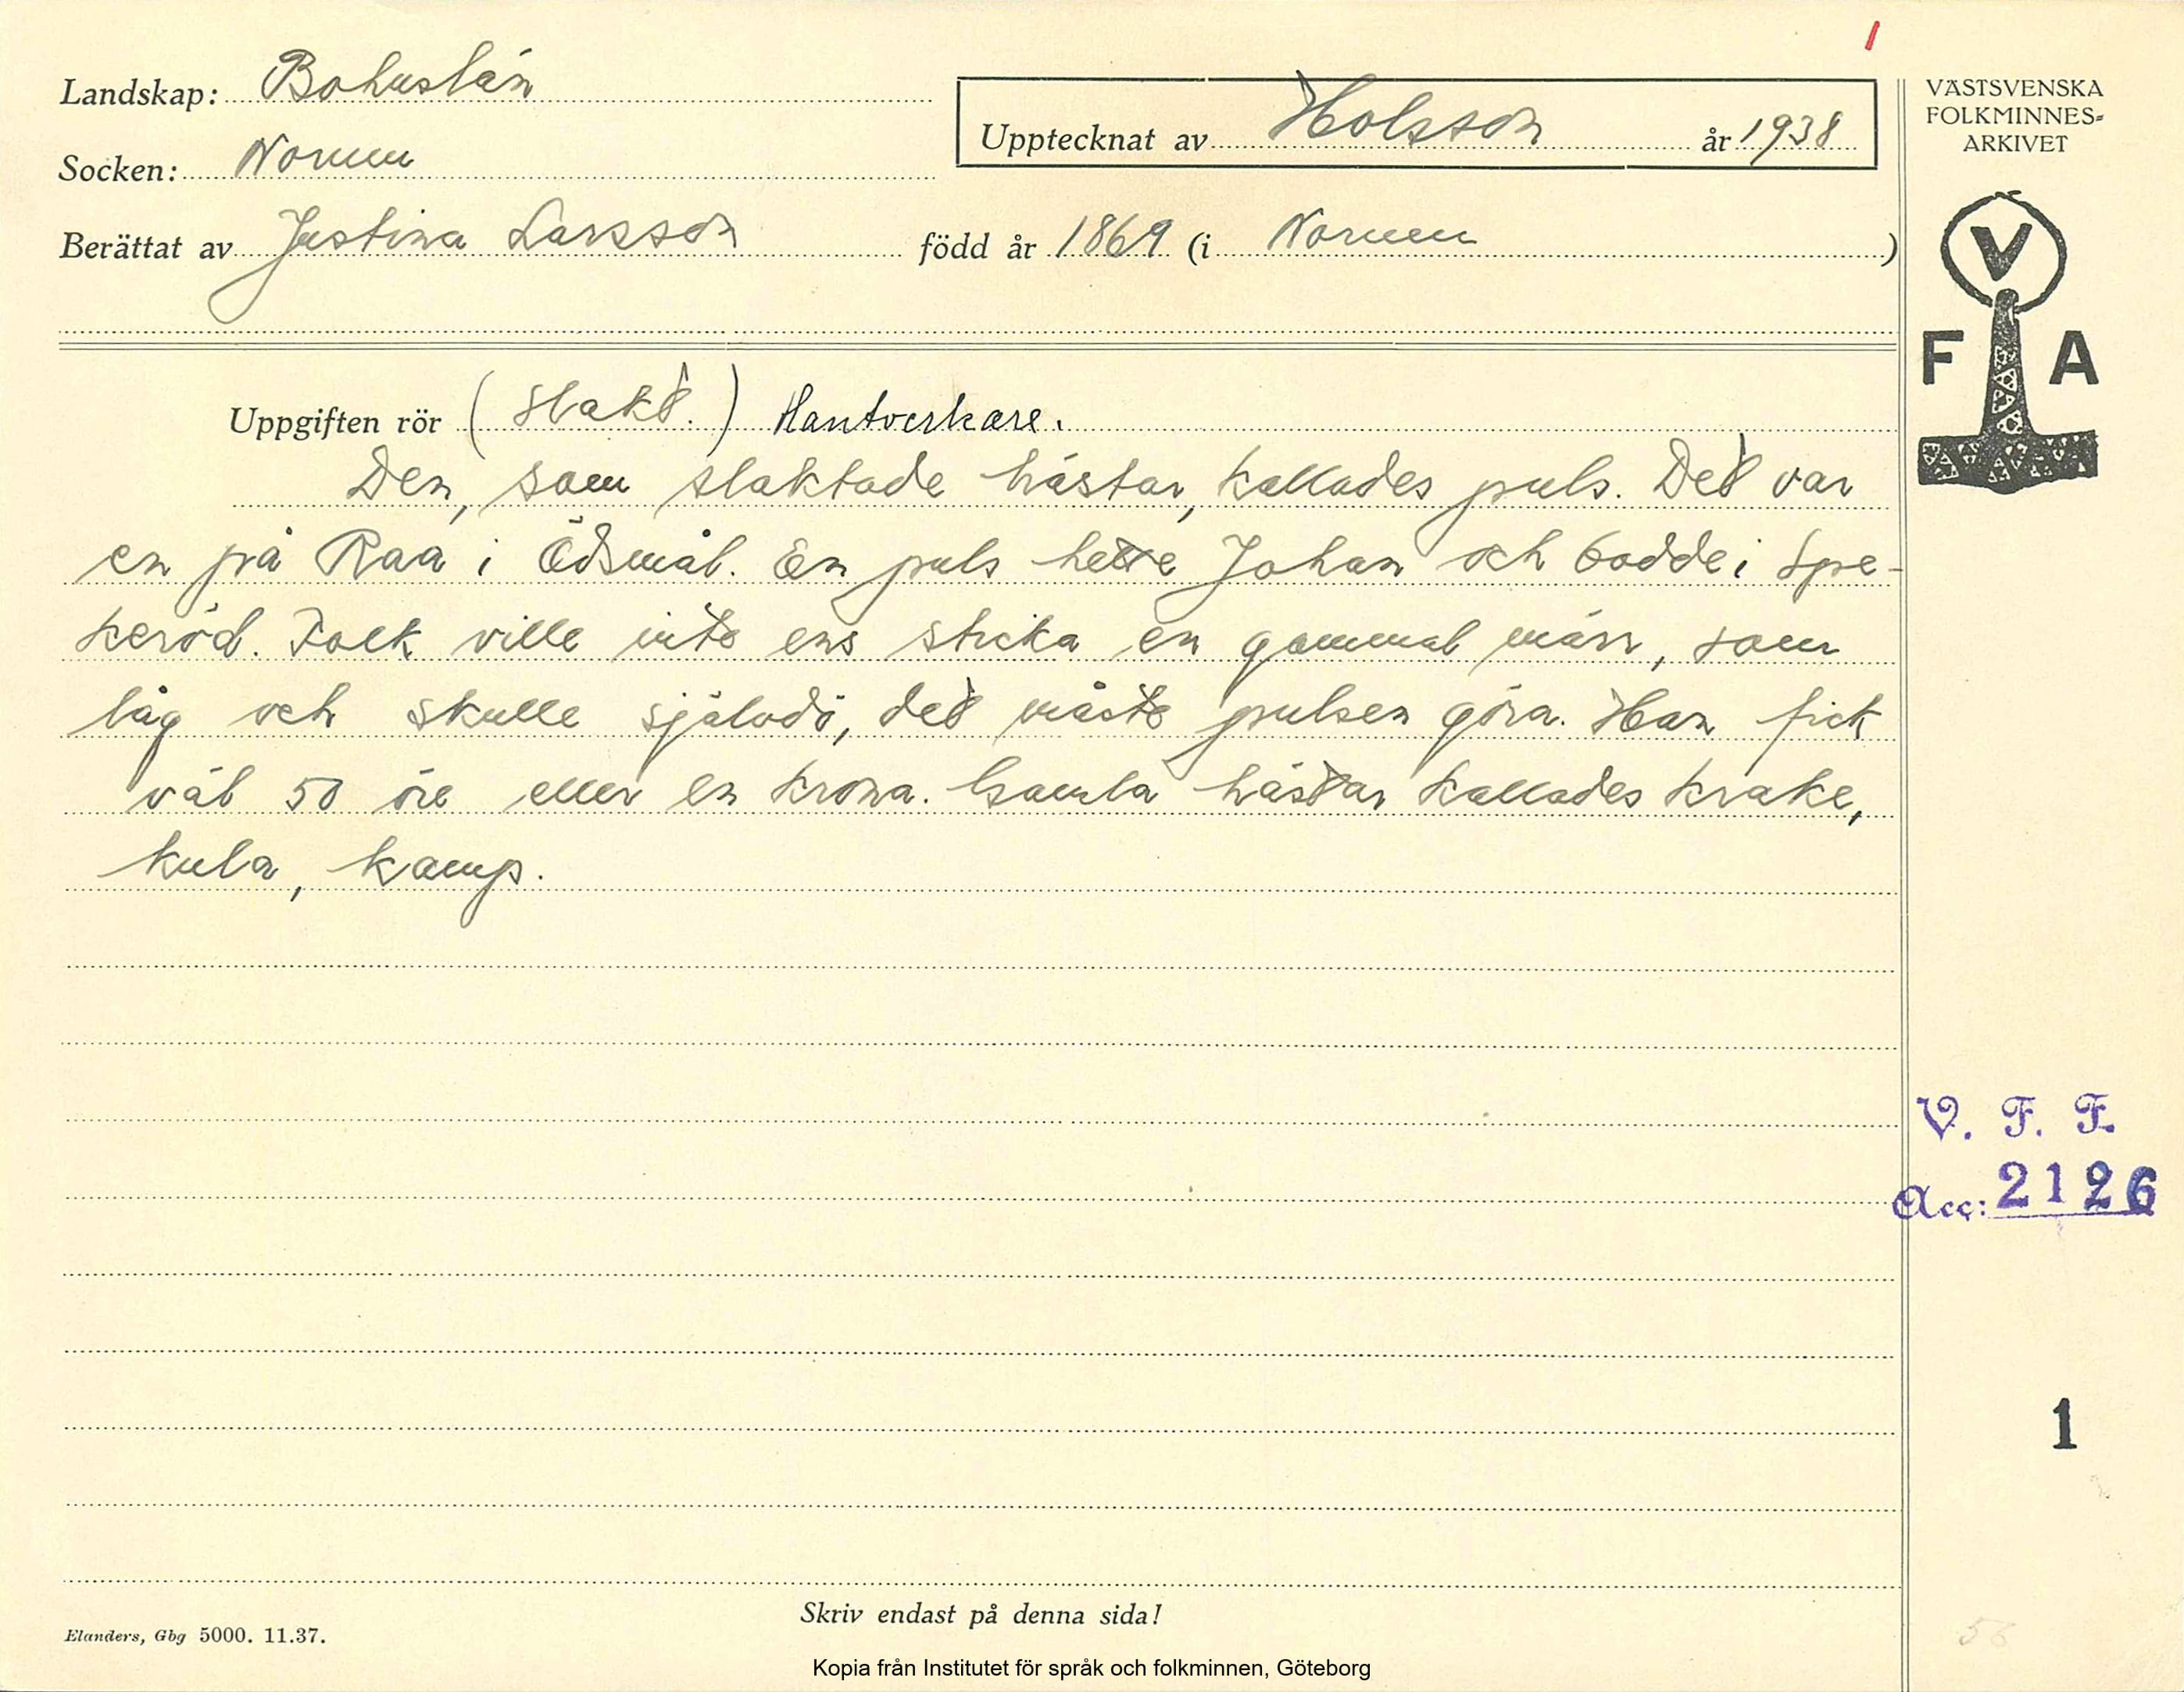 Landskap: Bohuslän
Socken: Norum
Berättat av Justina Larsson född år 1869 (i Norum)
Upptecknat av Holsson år 1938
Uppgiften rör (Slakt.) Hantverkare.
Den, som slaktade hästar, kallades puls. Det var
en på Raa i Ödsmål. En puls hette Johan och bodde i Spe-
keröd. Folk ville inte ens sticka en gammal märr, som
låg och skulle självdö, det måste pulsen göra. Han fick
väl 50 öre eller en krona. Gamla hästar kallades krake,
kula, kamp.
Skriv endast på denna sida!
Elanders, Gbg 5000. 11.37.
Kopia från Institutet för språk och folkminnen, Göteborg
VÄSTSVENSKA
FOLKMINNES-
ARKIVET
V
F A
V. F. F.
Acc: 2126
1